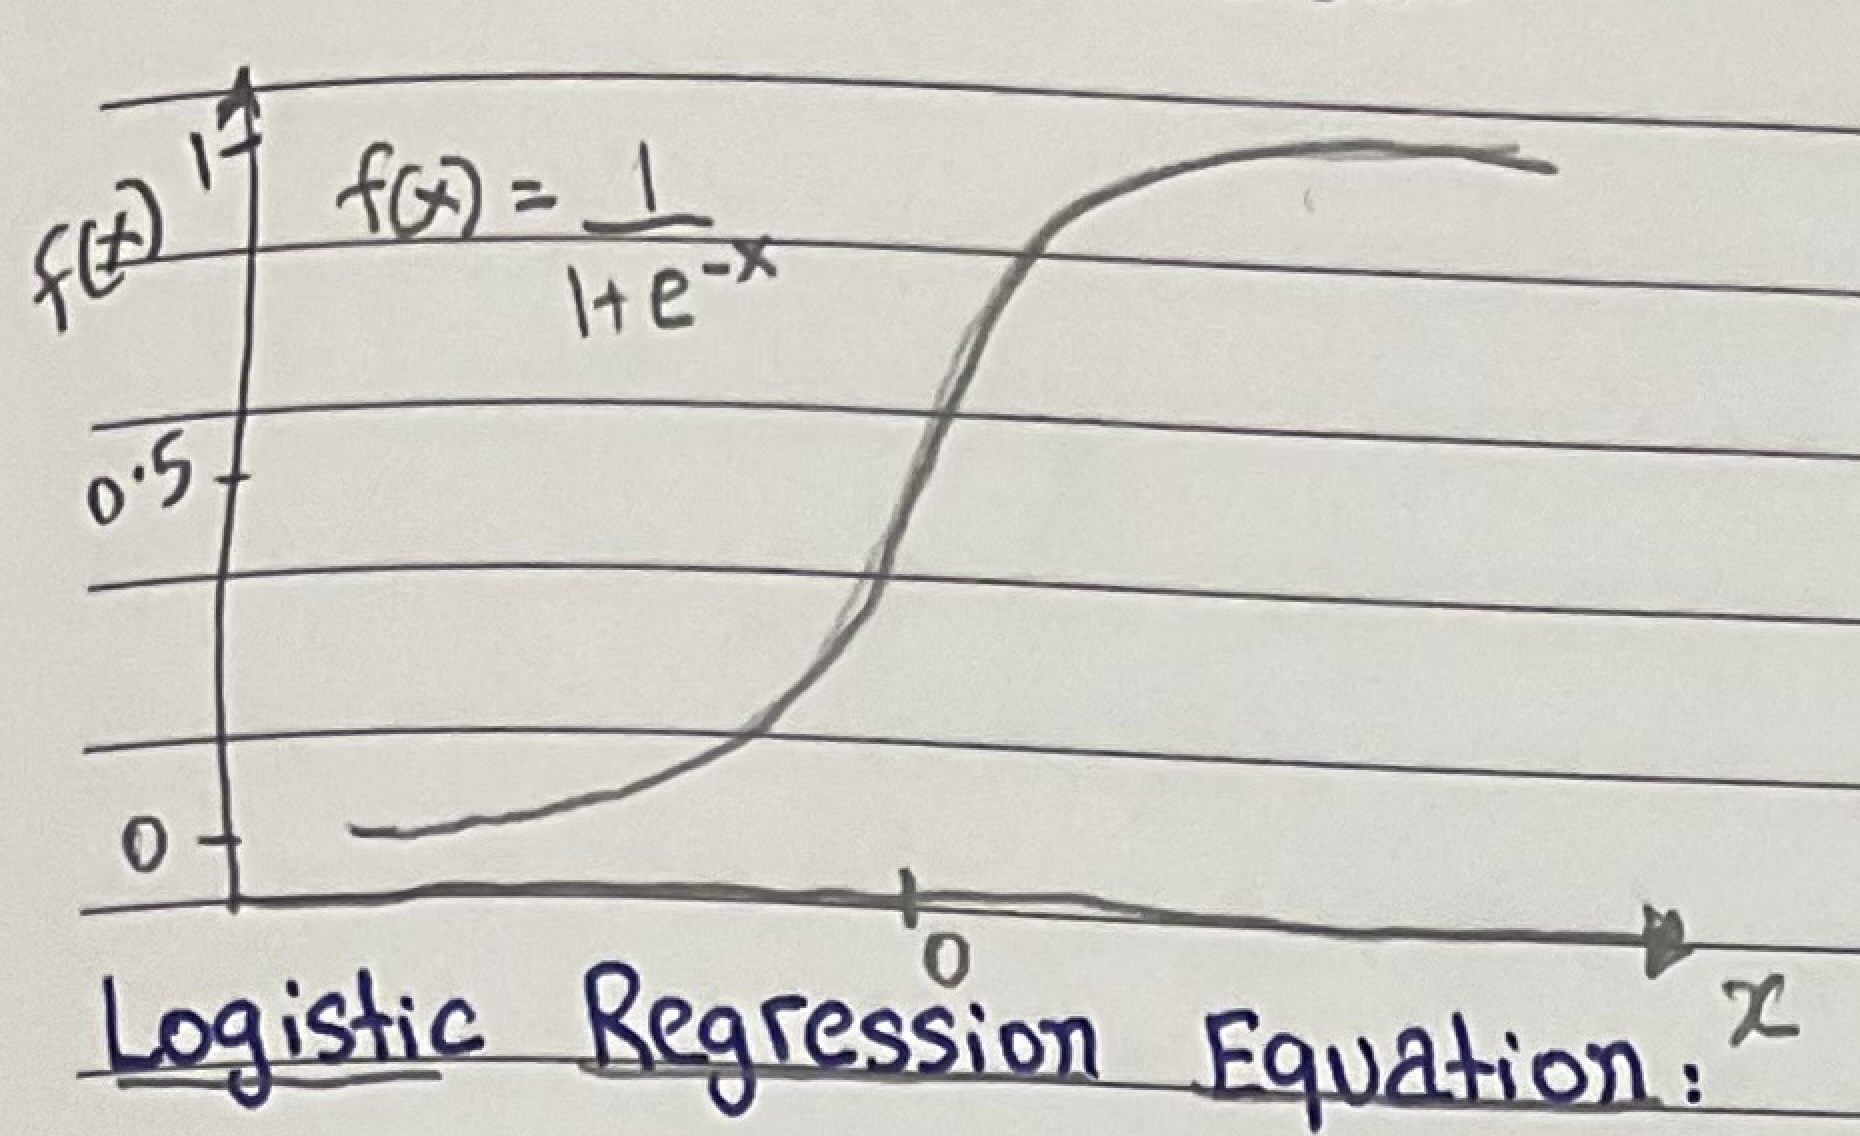 1
f(x)
f(x) = 1
1+e^-x
0.5
0
0
x
Logistic Regression Equation: